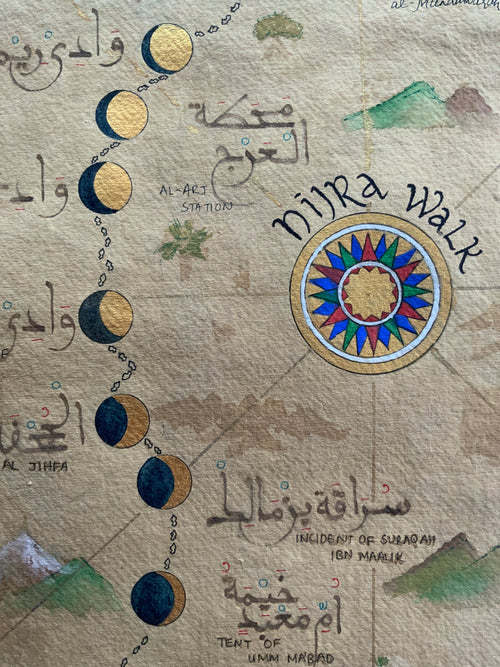 وادي ريم
محطة
العرج
AL-ARJ
STATION
HIJRA WALK
وادي
الجحفة
AL JIHFA
سراقة بن مالك
INCIDENT OF SURAQAH
IBN MAALIK
خيمة
أم معبد
TENT OF
UMM MA'BAD